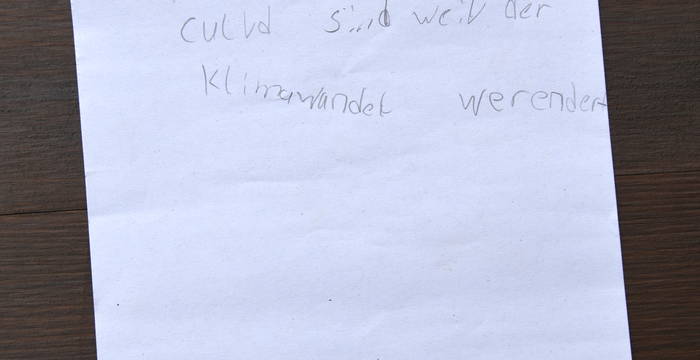 sind weil der
Klimawandel werendert